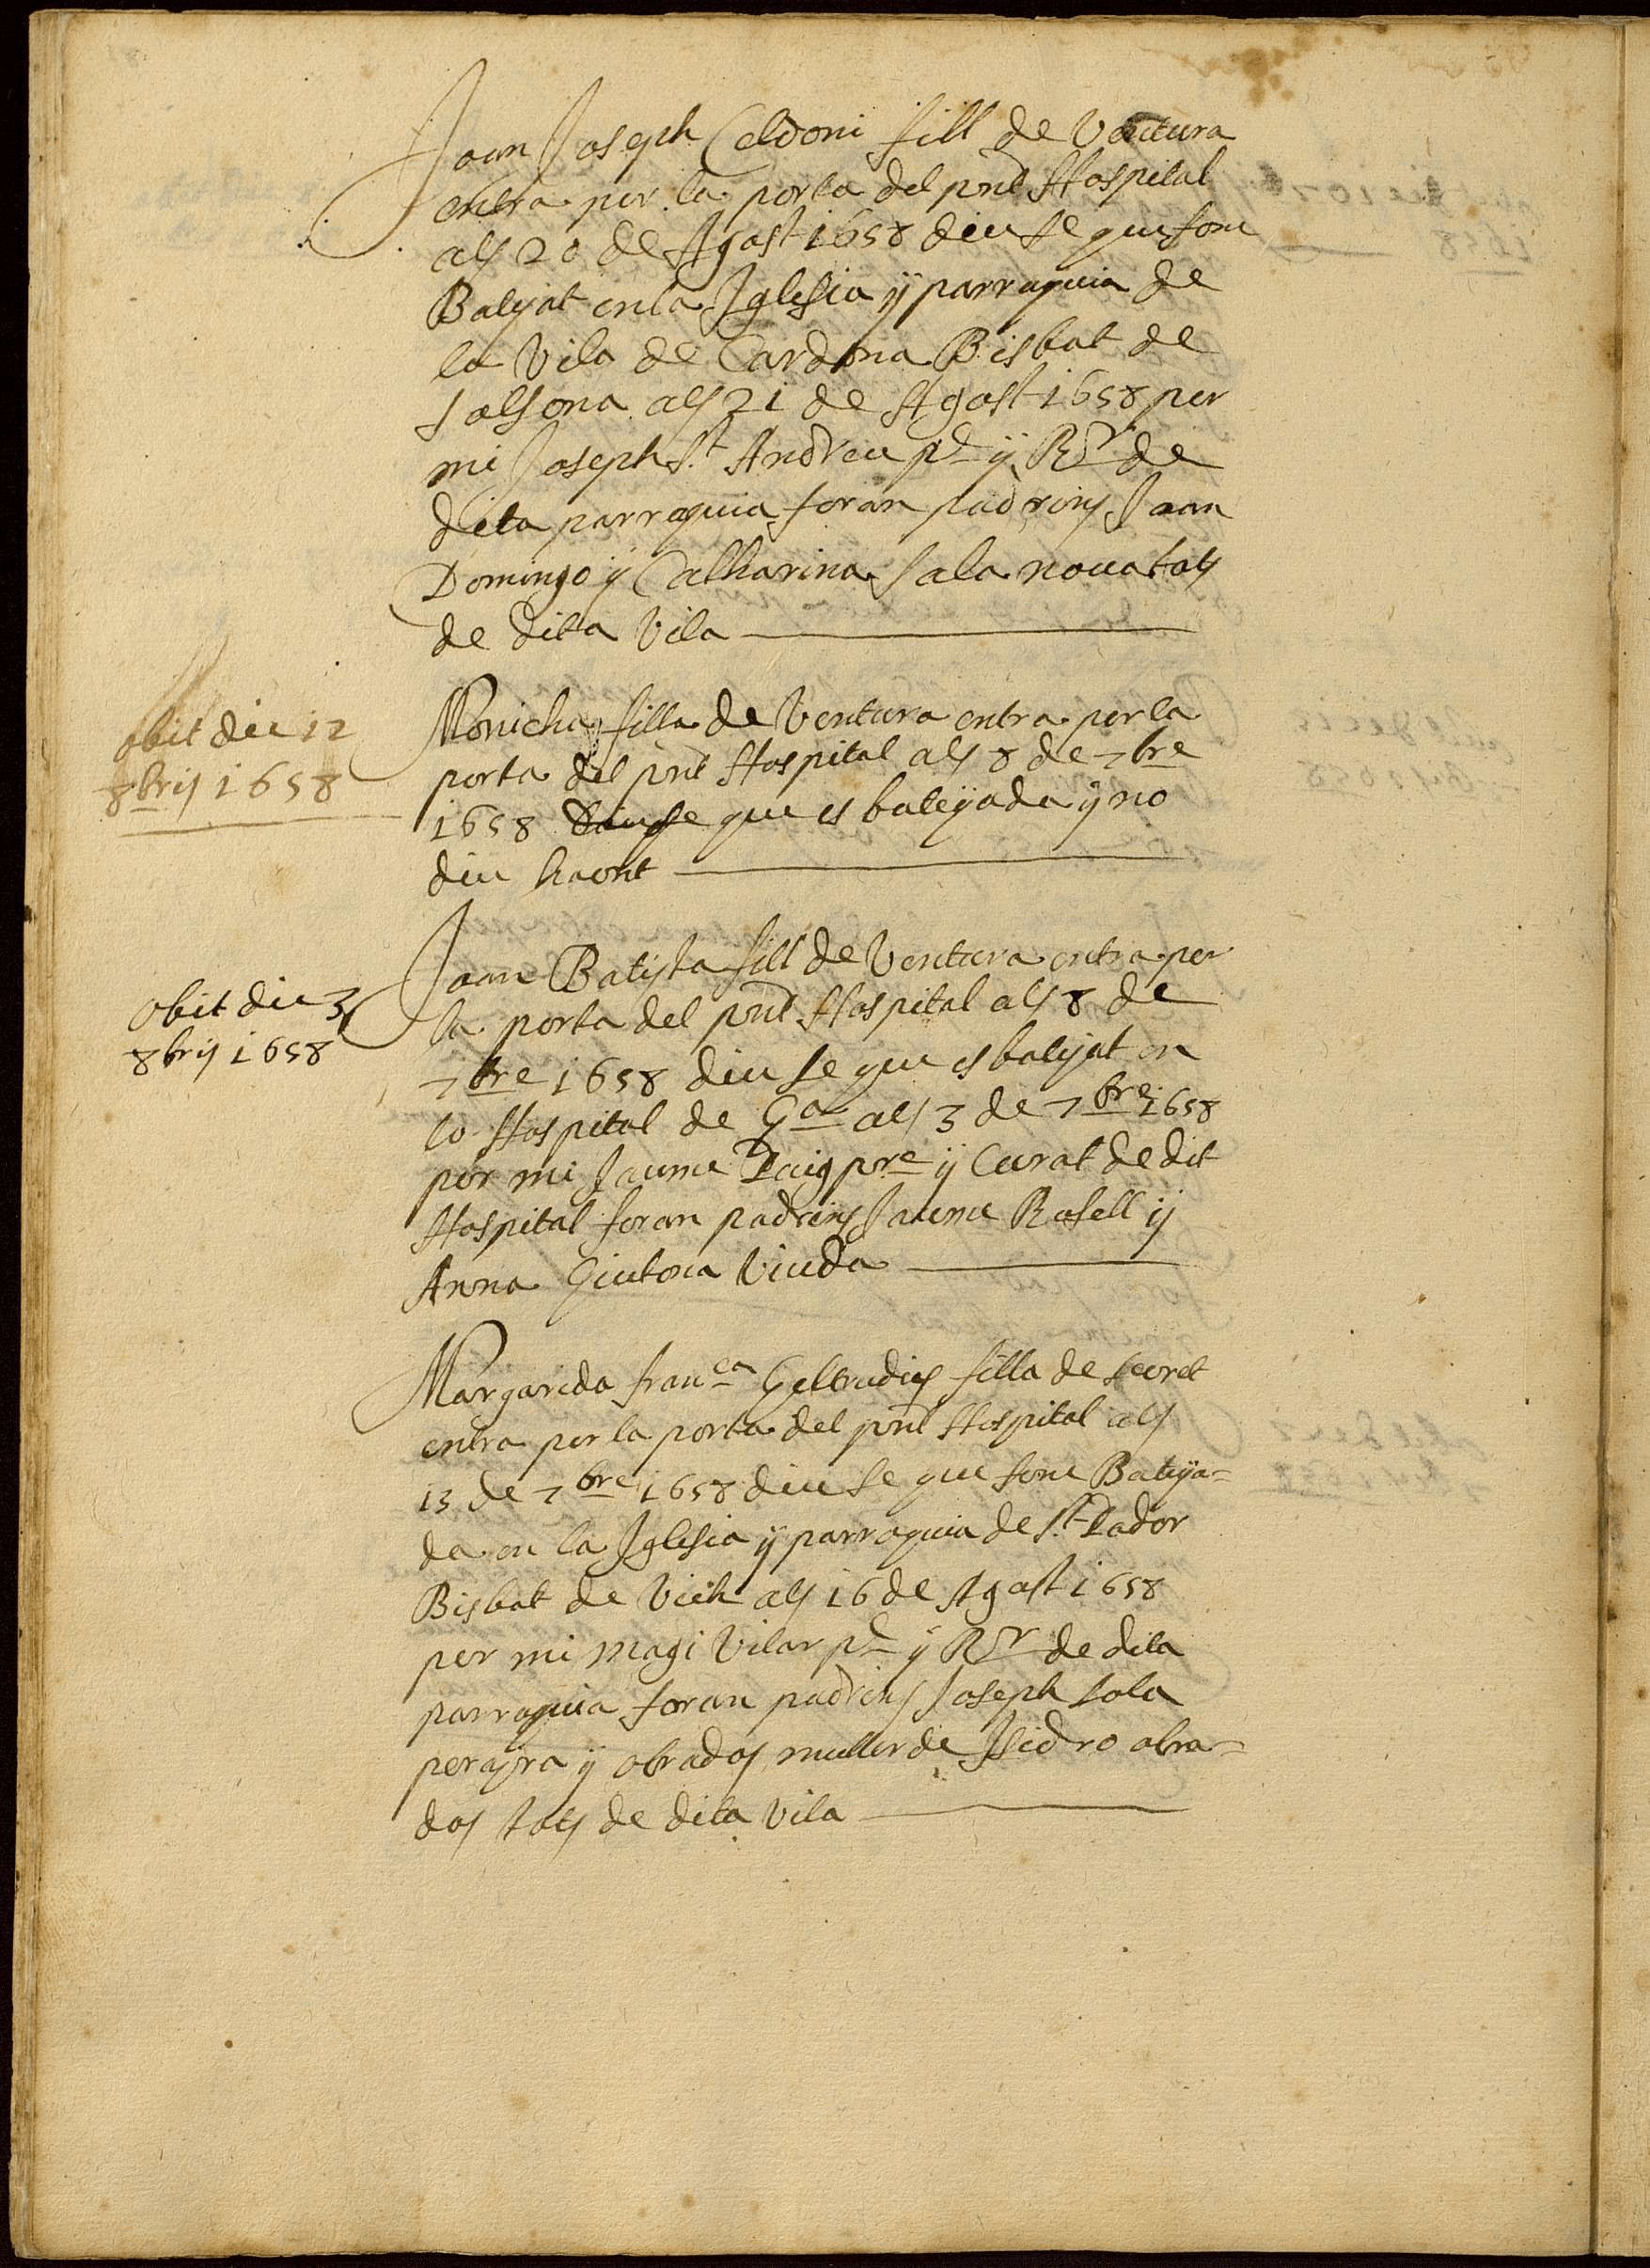 Joan Joseph Celdoni fill de Ventura
entra per la porta del pnt Hospital
als 20 de Agost 1658 diu se que fonc
Batejat en la Iglesia ÿ parroquia de
la Vila de Cardona Bisbat de
solsona als 21 de Agost 1658 per
mi Joseph St Andreu pe ÿ Rr de
dita parroquia foran padrins Joan
Domingo ÿ Catharina sala nova tots
de dita Vila
obit die 12
8bris 1658
Monicha filla de Ventura entra per la
porta del pnt Hospital als 8 de 7bre
1658 que es batejada ÿ no
diu haont
obit die 3
8bris 1658
Joan Batista fill de Ventura entra per
la porta del pnt Hospital als 8 de
7bre 1658 diu se que es batejat en
lo Hospital de Gna als 3 de 7bre 1658
per mi Jaume Puig pre ÿ Curat de dit
Hospital foran padrins Jaume Rosell ÿ
Anna Giutona Viuda
Margarida franca Geltrudis filla de secret
entra per la porta del pnt Hospital als
13 de 7bre 1658 diu se que fonc Bateja=
da en la Iglesia ÿ parroquia de St Pador
Bisbat de Vich als 16 de Agost 1658
per mi Magi Vilar pe ÿ Rr de dita
parroquia foran padrins Joseph sola
perayra ÿ obrados muller de Isidro obra=
dos tots de dita Vila